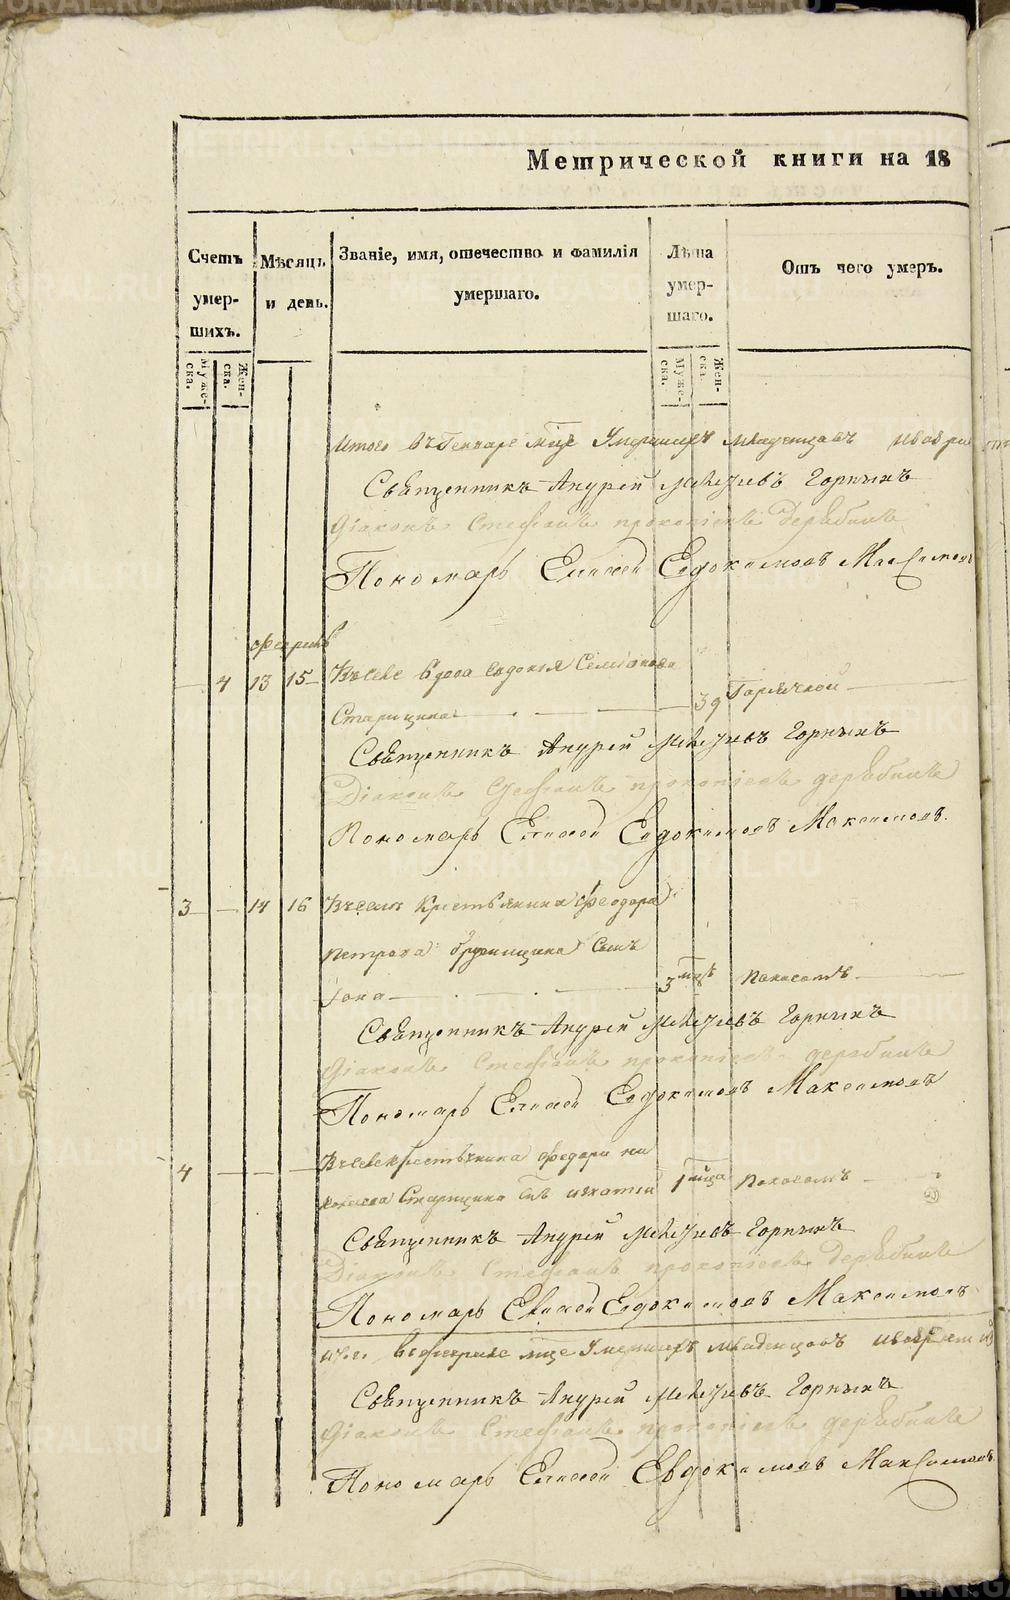 Метрической книги на 18
Счетъ умер- шихъ.
Мѣсяцъ и день.
Званіе, имя, отечество и фамилія умершаго.
Лѣта умер- шаго.
Отъ чего умеръ.
Муже- ска.
Жен- ска.
Муже- ска.
Жен- ска.
итого въ Генваре мце Умершихъ младенцовъ
Священникъ Андрей Горныхъ
Діаконъ Стефанъ прокопіевъ дерябинъ
Пономарь Елисей Евдокимовъ Максимовъ
февраль
4 13 15 вдова евдокія Семіонова
Старицина 39 Горячкой
Священникъ Андрей Горныхъ
Діаконъ Стефанъ прокопіевъ дерябинъ
Пономарь Елисей Евдокимовъ Максимовъ.
3 14 16 крестьянина Феодора
петрова Сынъ
Іона 3 мцъ поносомъ
Священникъ Андрей Горныхъ
Діаконъ Стефанъ прокопіевъ дерябинъ
Пономарь Елисей Евдокимовъ Максимовъ
4 крестьянина федора
Старицина Снъ игнатій 1 мца поносомъ
Священникъ Андрей Горныхъ
Діаконъ Стефанъ прокопіевъ дерябинъ
Пономарь Елисей Евдокимовъ Максимовъ
феврале мце Умершихъ младенцовъ
Священникъ Андрей Горныхъ
Діаконъ Стефанъ прокопіевъ дерябинъ
Пономарь Елисей Евдокимовъ Максимовъ
METRIKI.GASO-URAL.RU